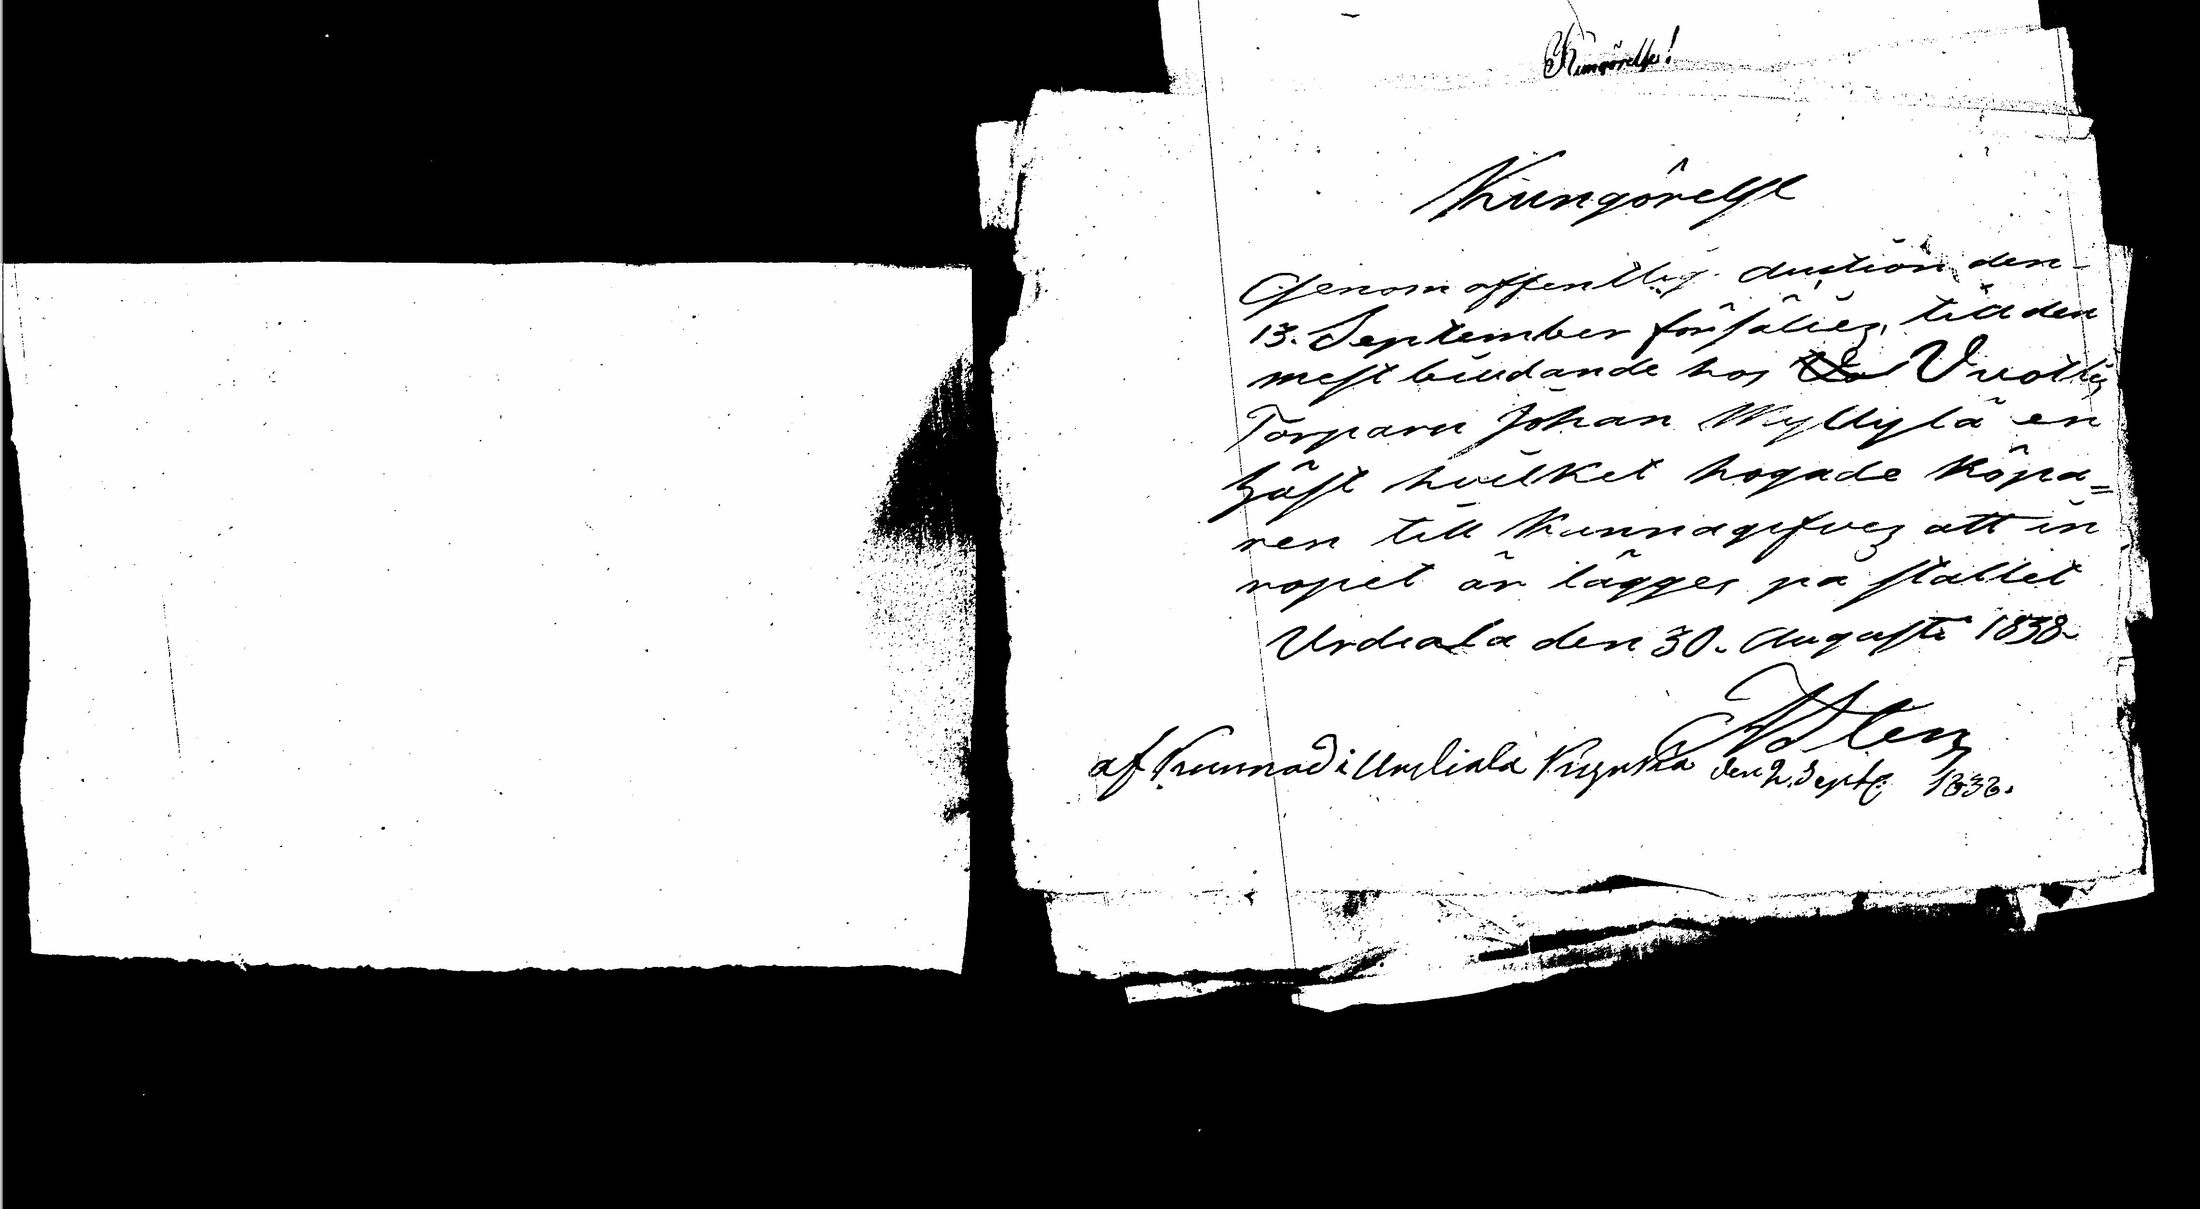 Kungörelse!
Kungörelse
Genom offentlig auction den
13. September försäljes, till den
mest biudande hos Vuoltis
Torparn Johan Myllylä en
häst hvilket hogade köpa=
ren till kunnagifves att in
ropet är lägges pa stallet
Urdiala den 30. Augusti 1838
af Kunnad i Urdiala Kyrcka den 2. Septe 1838.